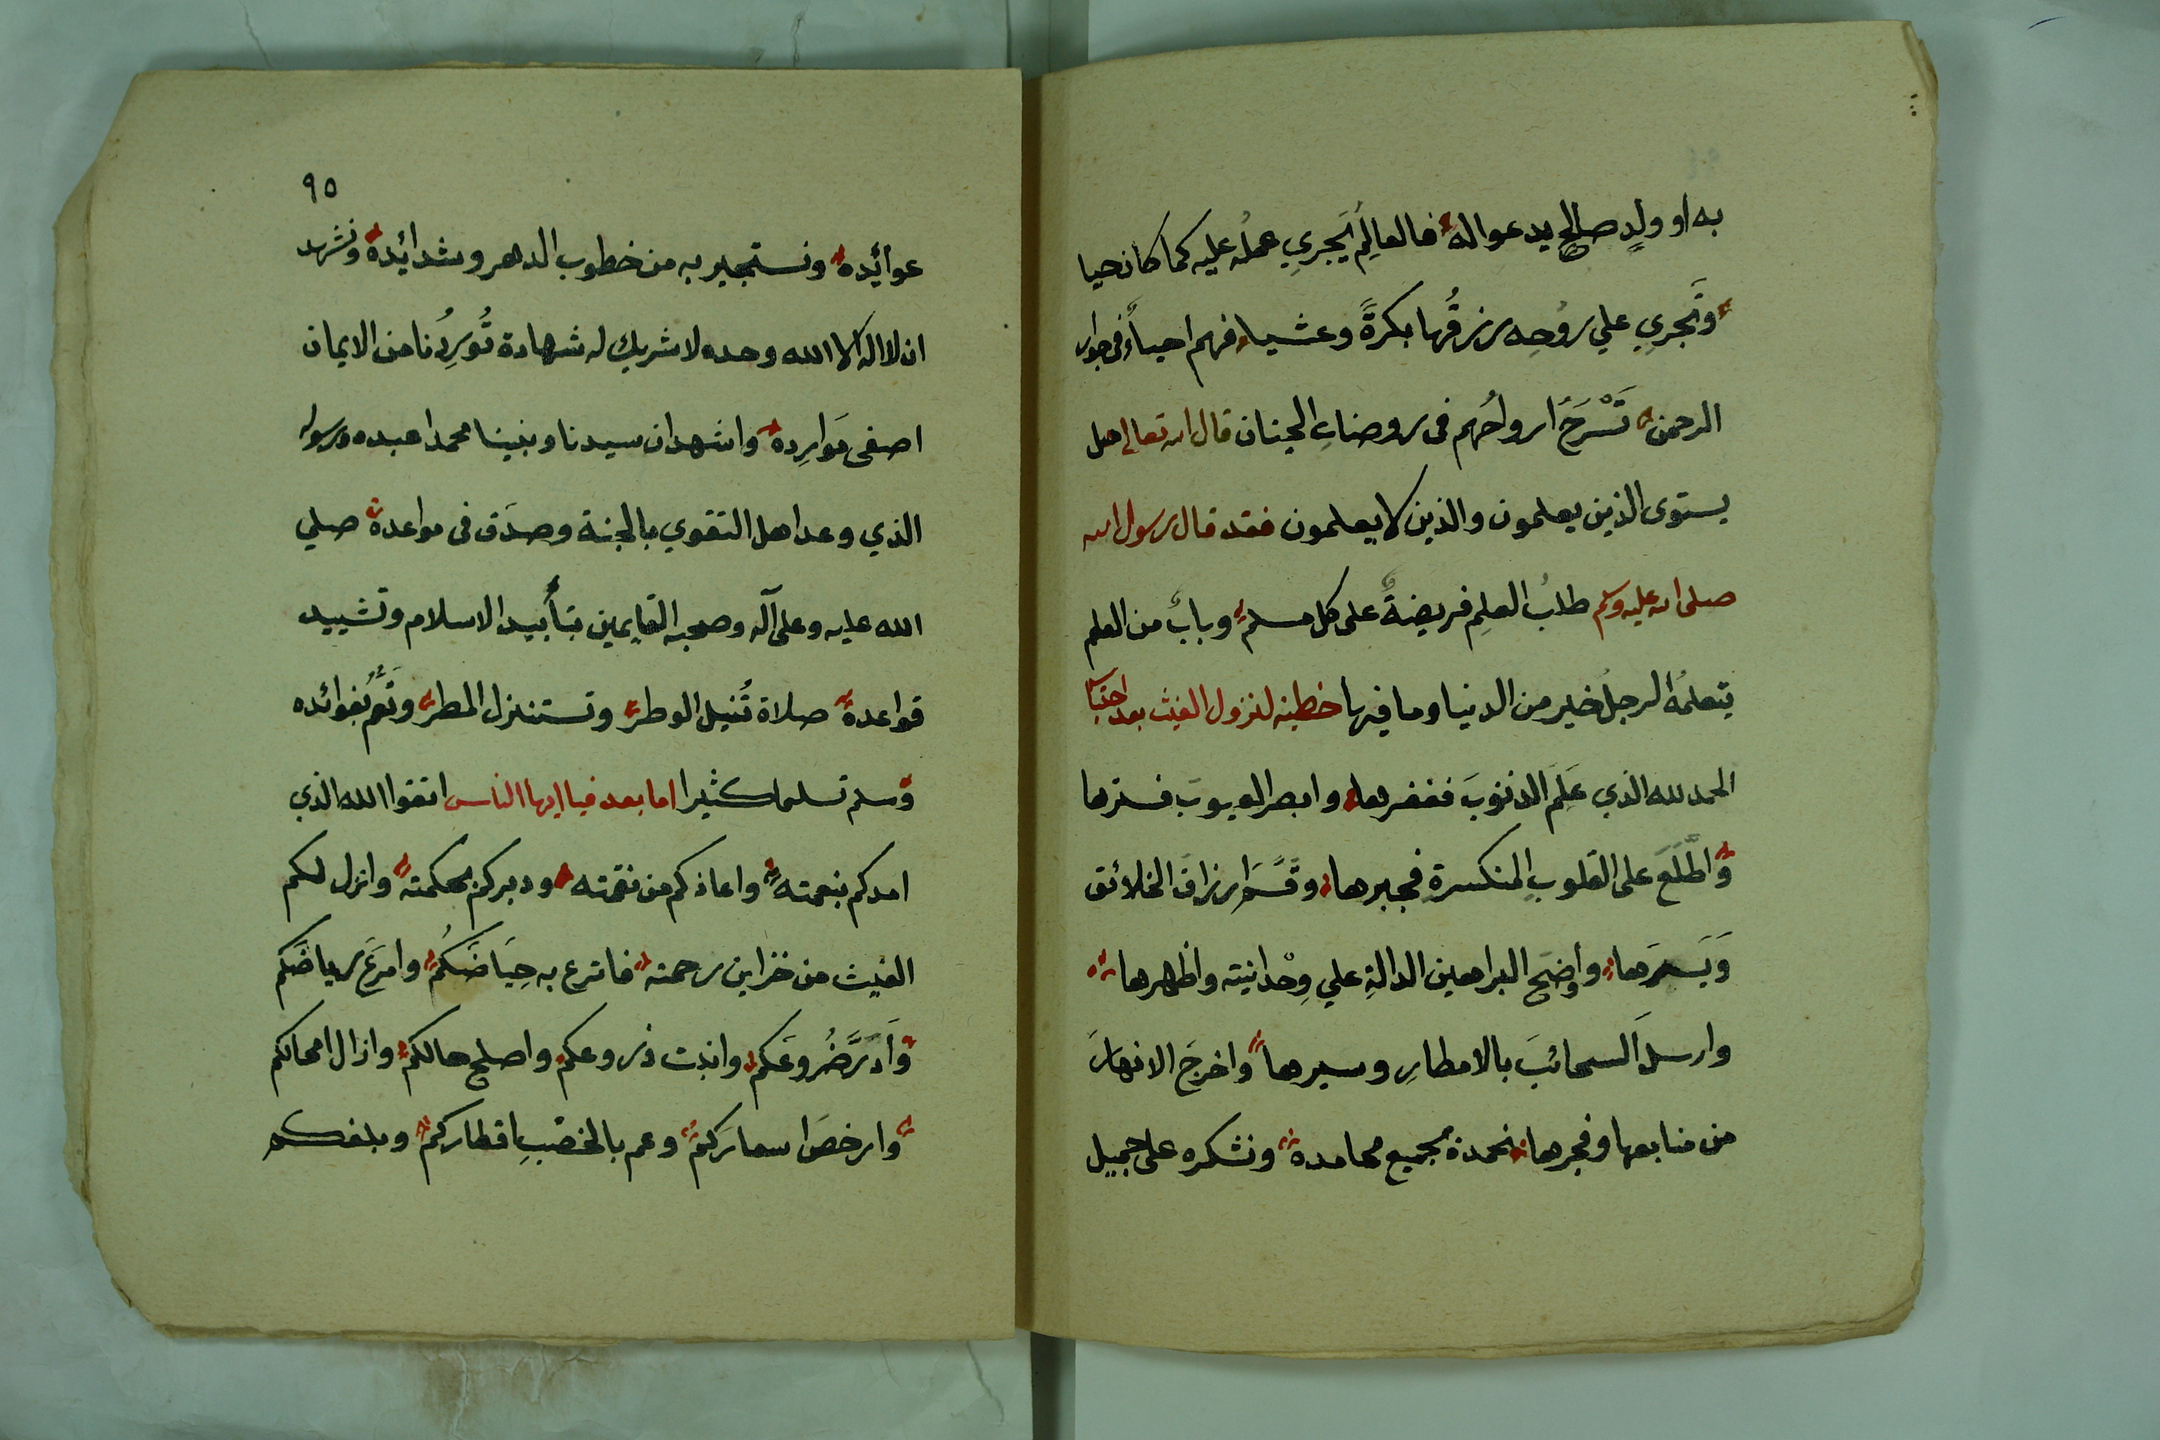 به او ولدٍ صالحٍ يدعواله فالعالِمُ يَجرِي عملُه عليه كما كان حيا
وتَجرِي علي رُوحِه رزقُها بكرةً وعشيا فهم احياءٌ في جوار
الرحمن تَسْرَحُ ارواحُهم في روضاتِ الجنان قال الله تعالى هل
يستوى الذين يعلمون والذين لا يعلمون فقد قال رسول الله
صلى الله عليه وسلم طلبُ العلمِ فريضةٌ على كل مسلم وبابٌ من العلم
يتعلمُه الرجلُ خير من الدنيا وما فيها خطبة لنزول الغيث بعد
الحمد لله الذي عَلِمَ الذنوبَ فغفرها وابصر العيوبَ فسترها
واطَّلَعَ على القلوبِ المنكسرةِ فجبرها وقسَّم ارزاقَ الخلائق
وَيَسَّرَها وأوضح البراهين الدالةِ علي وِحْدانيته واظهرها
وارسلَ السحائبَ بالامطارِ وسيرها واخرجَ الانهارَ
من منابعها وفجرها نحمدة بجميع محامدة ونشكره على جميل
٩٥
عوائيده ونستجير به من خطوب الدهر وشدائيدة ونشهد
ان لا اله الا الله وحده لا شريك له شهادة تُورِدُنا من الايمان
اصفى مَوارِدة واشهد ان سيدنا ونبينا محمدا عبده ورسوله
الذي وعد اهل التقوي بالجنة وصدَق في مواعدة صلي
الله عليه وعلى آله وصحبه القايمين بتأييد الاسلام وتشييد
قواعدة صلاة تُنيل الوطر وتستنزل المطر وتَؤُمُّ بفوائده
وسلم تسليما كثيرا اما بعد فيا ايها الناس اتقوا الله الذي
امدكم بنعمته واعاذكم من نقمته ودبركم بحكمته وانزل لكم
الغيث من خزاين رحمته فاترع به حِيَاضَكُم وامرَعَ رياضَكم
وَاَدَرَّ ضُروعَكم وانبت ذروعكم واصلح حالكم وازال امحالكم
وارخصَ اسعارَكم وعم بالخصْبِ اقطاركم وبلغكم